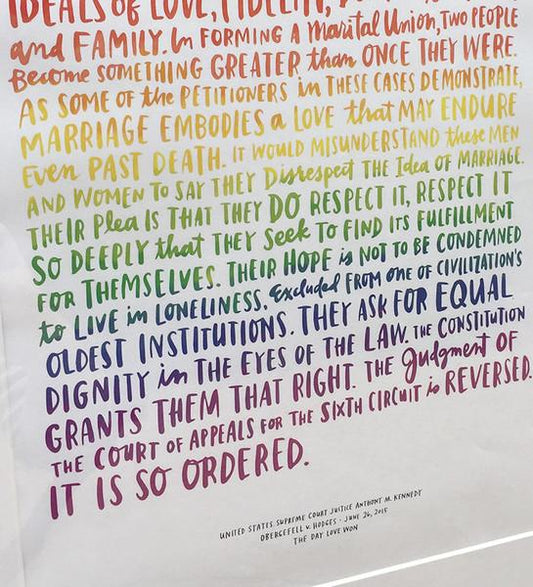 IDEALS OF LOVE, FIDELITY,
and FAMILY. In FORMING A Marital Union, TWO PEOPLE
Become SOMETHING GREATER than ONCE THEY WERE.
AS SOME OF the PETITIONERS in THESE CASES DEMONSTRATE,
MARRIAGE EMBODIES a LOVE that MAY ENDURE
Even PAST DEATH. IT WOULD MISUNDERSTAND these MEN
AND WOMEN TO SAY THEY Disrespect THE Idea OF MARRIAGE.
THEIR Plea IS THAT THEY DO RESPECT IT, RESPECT IT
SO DEEPLY that THEY Seek TO FIND ITS FULFILLMENT
FOR THEMSELVES. THEIR HOPE is NOT TO BE CONDEMNED
to LIVE in LONELINESS, Excluded FROM ONE OF CIVILIZATION'S
OLDEST INSTITUTIONS. THEY ASK FOR EQUAL
DIGNITY in THE EYES OF THE LAW. THE CONSTITUTION
GRANTS THEM THAT RIGHT. THE Judgment OF
THE COURT OF APPEALS FOR THE SIXTH CIRCUIT is REVERSED.
IT IS SO ORDERED.
UNITED STATES SUPREME COURT JUSTICE ANTHONY M. KENNEDY
OBERGEFELL V. HODGES · JUNE 26, 2015
THE DAY LOVE WON